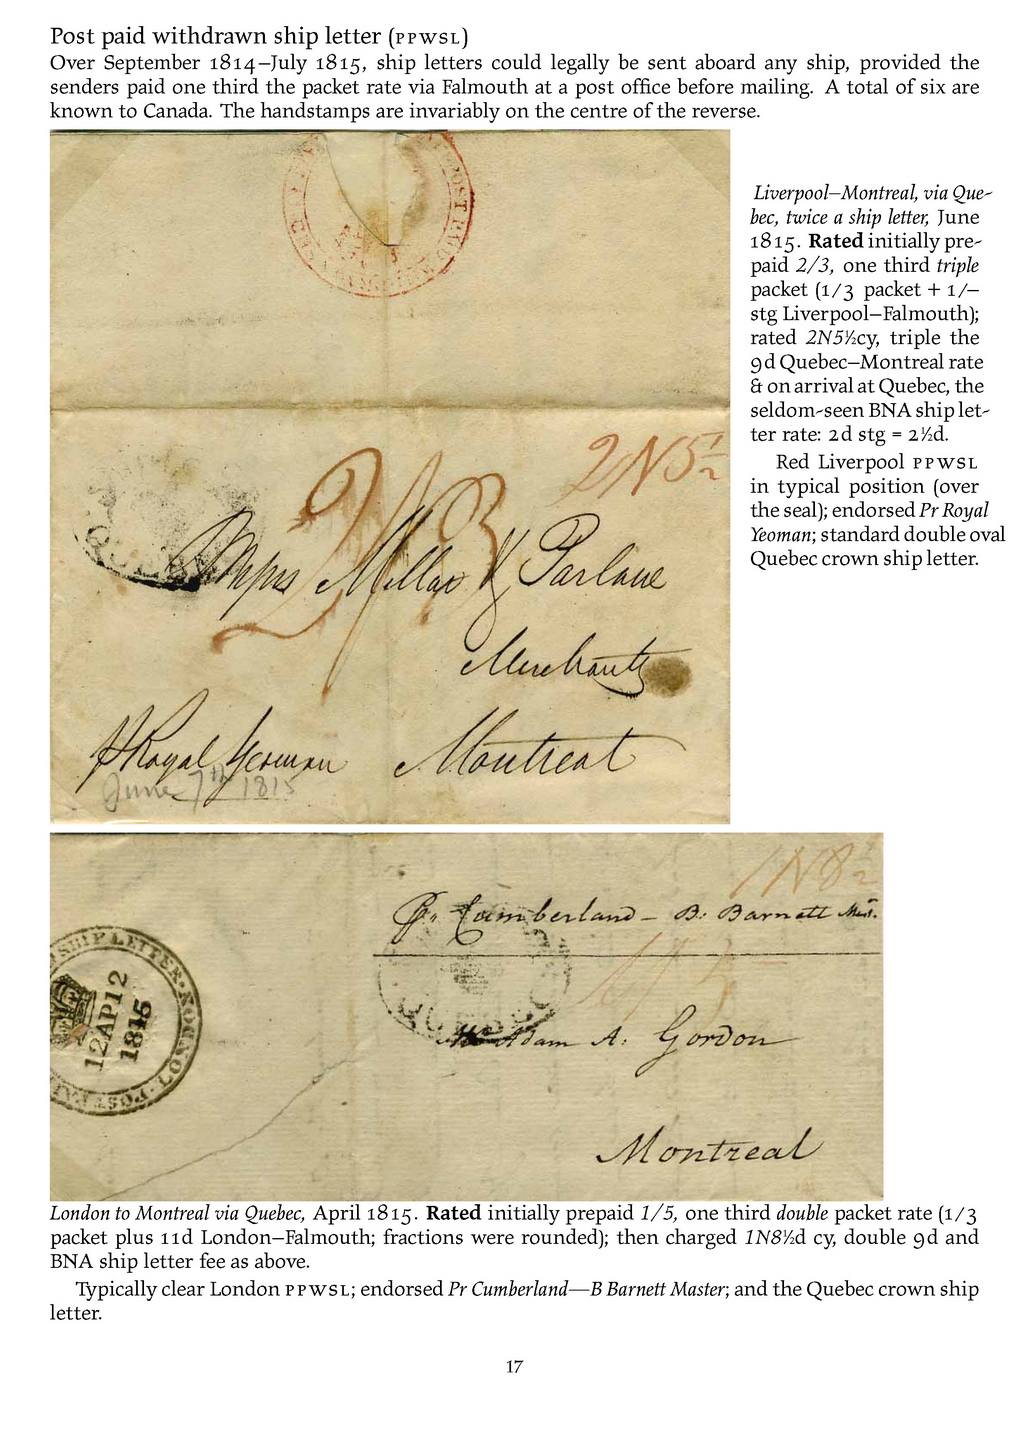 Post paid withdrawn ship letter (PPWSL)
Over September 1814–July 1815, ship letters could legally be sent aboard any ship, provided the
senders paid one third the packet rate via Falmouth at a post office before mailing. A total of six are
known to Canada. The handstamps are invariably on the centre of the reverse.
Liverpool–Montreal, via Que-
bec, twice a ship letter, June
1815. Rated initially pre-
paid 2/3, one third triple
packet (1/3 packet + 1/–
stg Liverpool–Falmouth);
rated 2N5½cy, triple the
9d Quebec–Montreal rate
& on arrival at Quebec, the
seldom-seen BNA ship let-
ter rate: 2d stg = 2½d.
Red Liverpool PPWSL
in typical position (over
the seal); endorsed Pr Royal
Yeoman; standard double oval
Quebec crown ship letter.
POST PAID
2N5½
2/3
QUEBEC
Millar Parlane
Merchants
Pr Royal Yeoman
Montreal
June 7th 1815
1N8½
Pr Cumberland – B. Barnett Mastr.
SHIP LETTER LONDON POST PAID
12 AP 12
1815
QUEBEC
Mr Adam A. Gordon
Montreal
London to Montreal via Quebec, April 1815. Rated initially prepaid 1/5, one third double packet rate (1/3
packet plus 11d London–Falmouth; fractions were rounded); then charged 1N8½d cy, double 9d and
BNA ship letter fee as above.
Typically clear London PPWSL; endorsed Pr Cumberland—B Barnett Master; and the Quebec crown ship
letter.
17